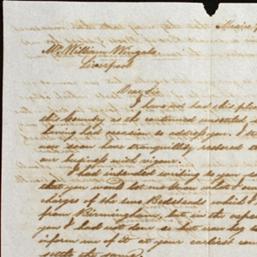 Mexico
Mr. William Wingate
Liverpool
Dear Sir
I have not had this ple
this Country as the continued unsettled
having had occasion to address you. I
now soon have tranquillity restored
our business with vigour.
I had intended writing to you
that you would let me know what I
charges of the two Bedsteads which I
from Birmingham, but in the
you I had not done so but now beg
inform me of it at your earliest con
settle the same.